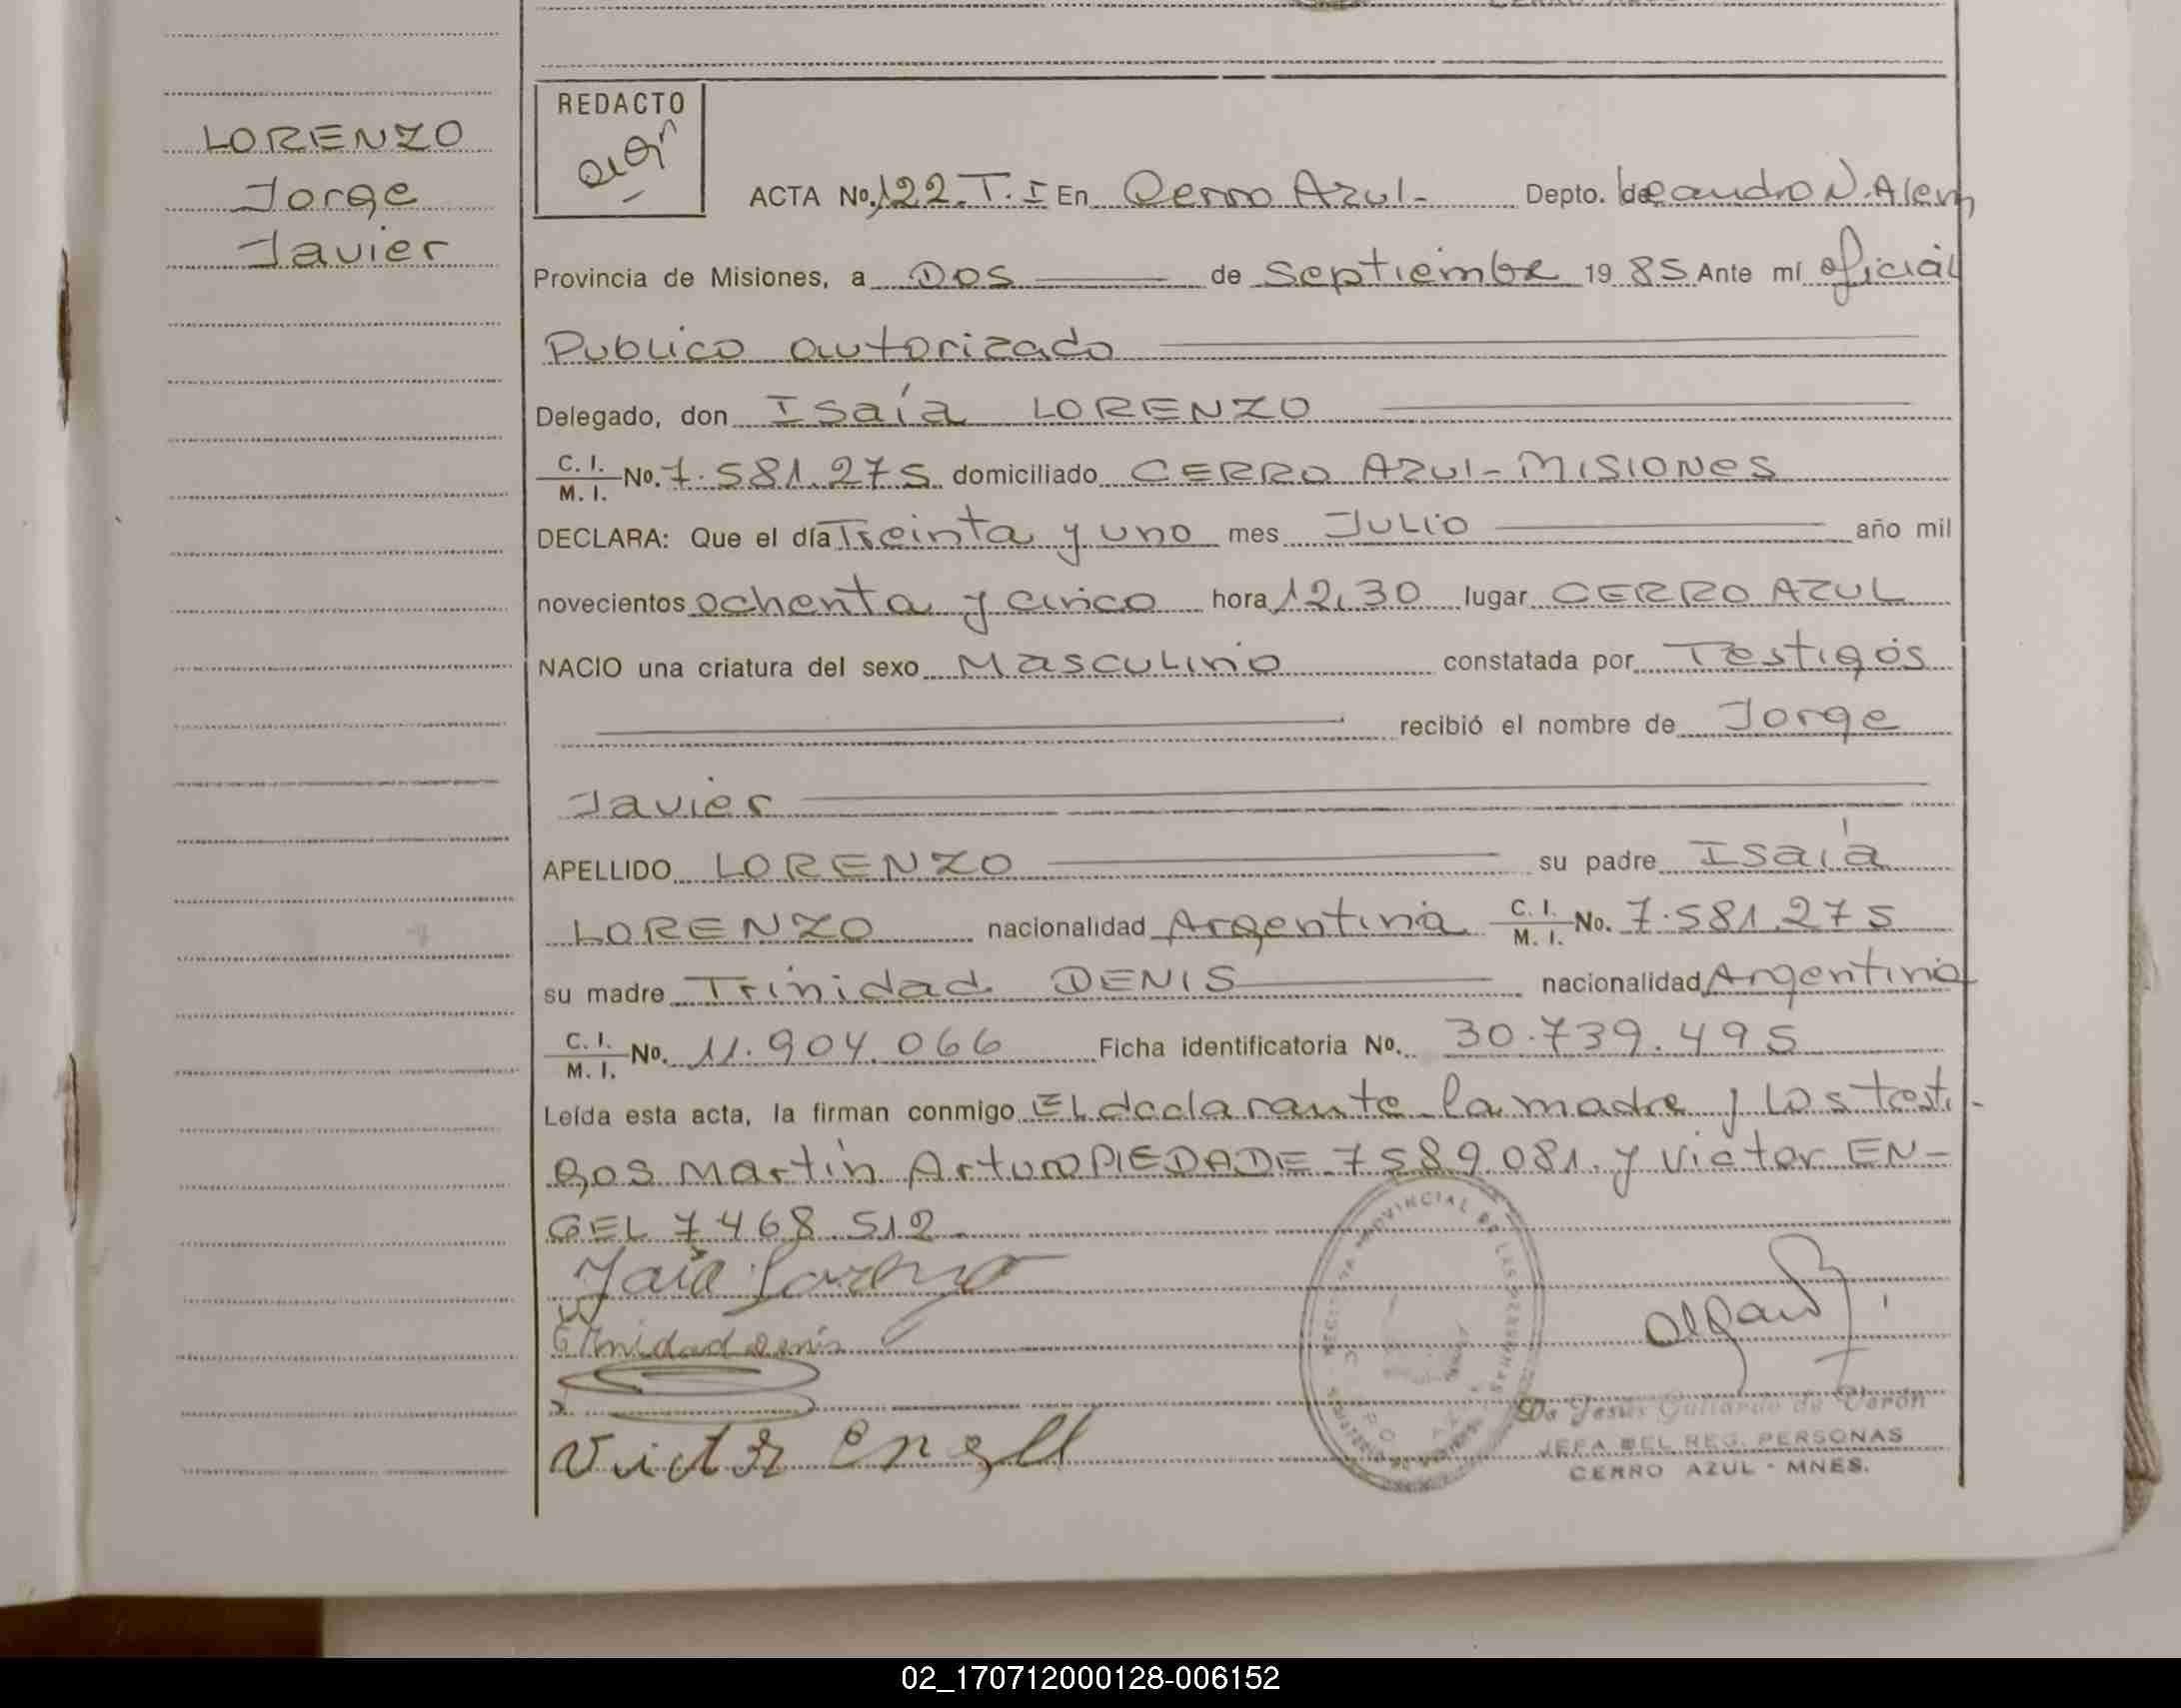 LORENZO
Jorge
Javier
REDACTO
ACTA No. 122. T. I En Cerro Azul - Depto. de Leandro N. Alem
Provincia de Misiones, a Dos de Septiembre 19 85 Ante mí oficial
Publico autorizado
Delegado, don Isaía LORENZO
C. I. / M. I. No. 7.581.275 domiciliado CERRO AZUl - MISIONES
DECLARA: Que el día Treinta y uno mes JULIO año mil
novecientos ochenta y cinco hora 12,30 lugar CERRO AZUL
NACIO una criatura del sexo Masculino constatada por Testigos
recibió el nombre de Jorge
Javier
APELLIDO LORENZO su padre Isaía
LORENZO nacionalidad Argentina C. I. / M. I. No. 7.581.275
su madre Trinidad DENIS nacionalidad Argentina
C. I. / M. I. No. 11.904.066 Ficha identificatoria No. 30.739.495
Leída esta acta, la firman conmigo EL declarante la madre y los testi-
gos Martín Arturo PIEDADE 7589.081. y Victor EN-
GEL 7468.512
Isaia Lorenzo
Trinidad Denis
Victor Engel
JEFA DEL REG. PERSONAS
CERRO AZUL - MNES.
02_170712000128-006152